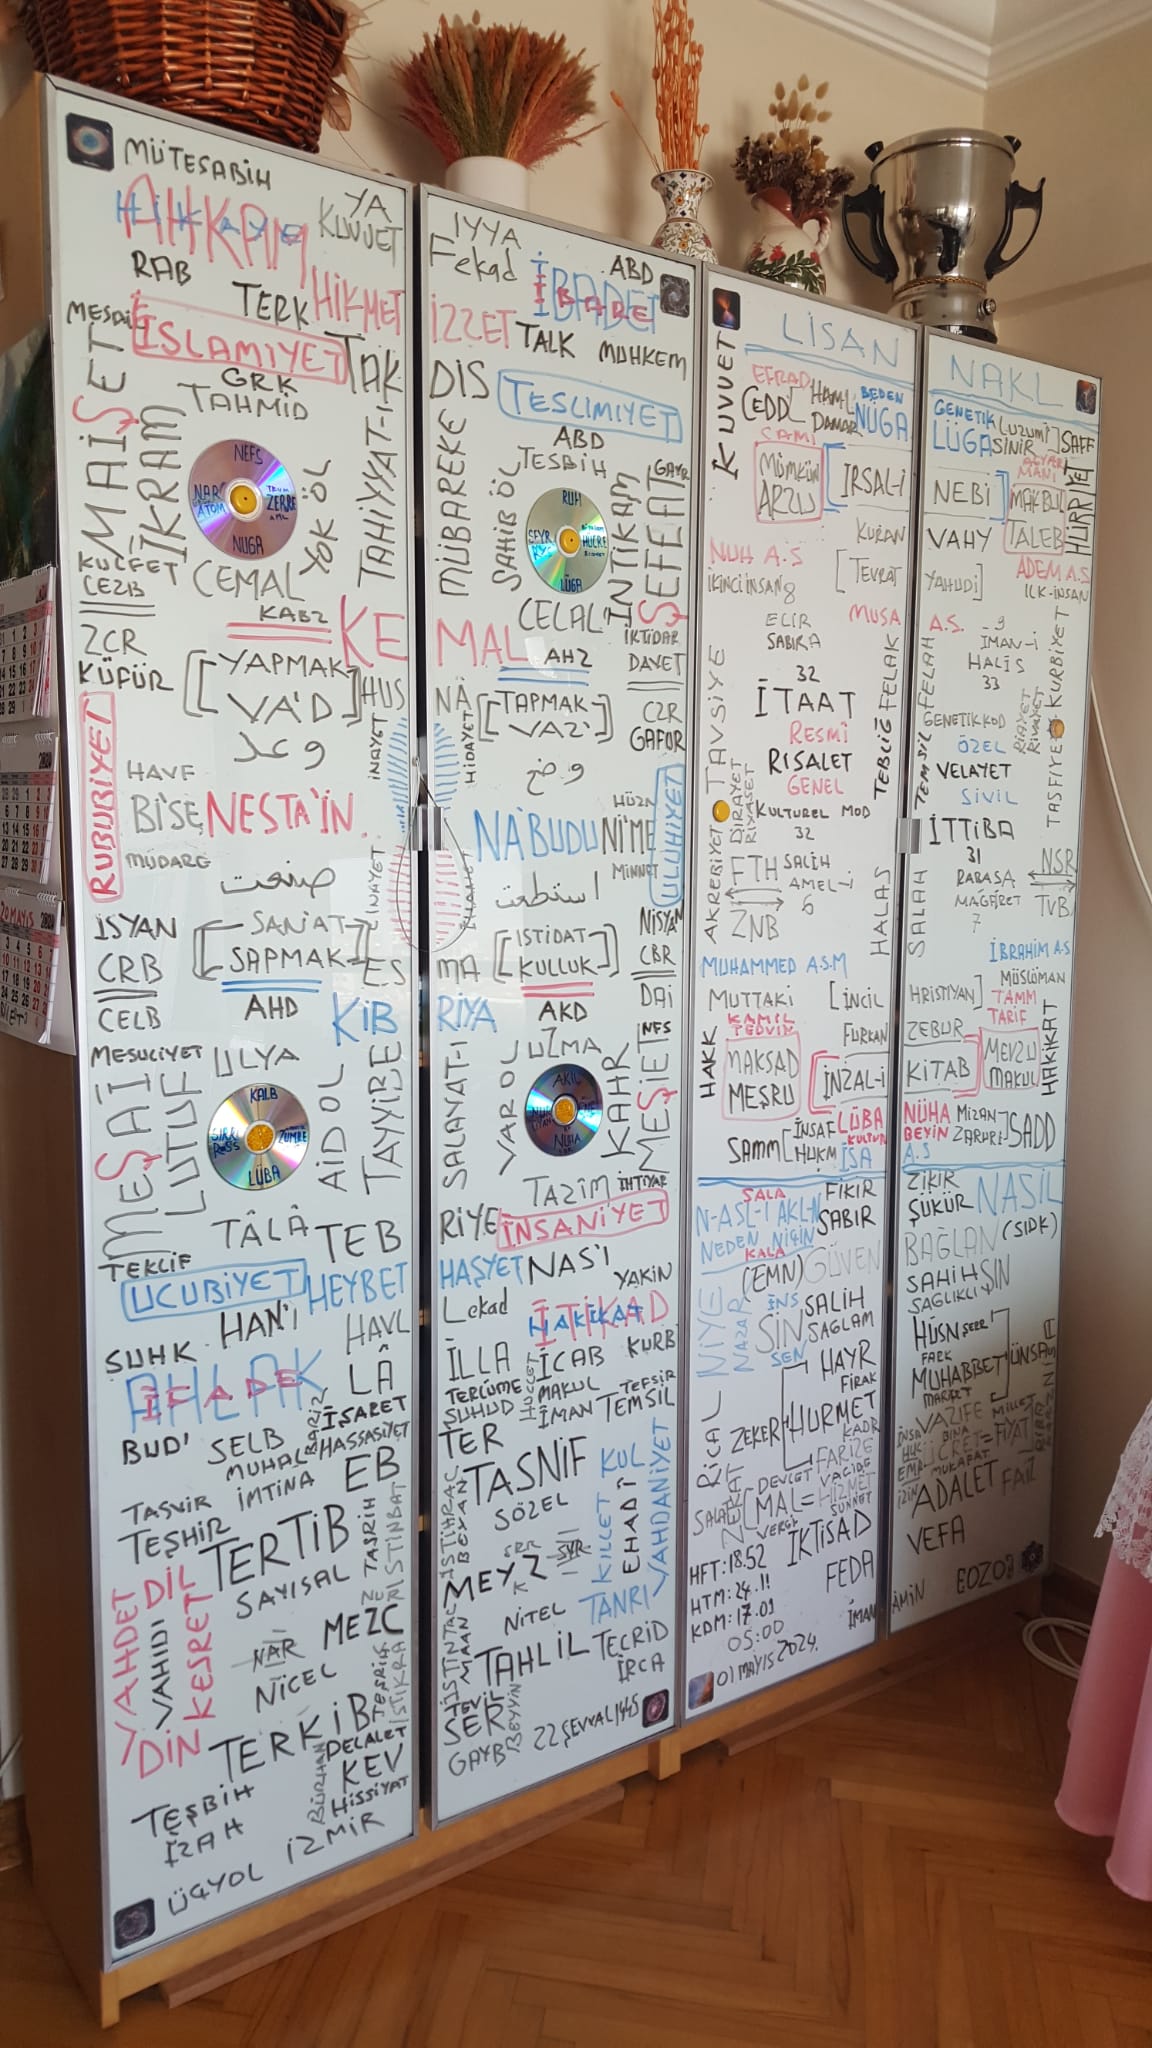 MÜTEŞABİH
AHKAM
HİKAYE
YA
KUVVET
RAB
TERK
HİKMET
İSLAMİYET
TAK
GRK
TAHMİD
MAİŞET
İKRAM
YOK ÖL
TAHİYYAT-I
NEFS
NAR
ATOM
ZERRE
NUGA
KÜLFET
CEZB
CEMAL
KABZ
KE
ZCR
KÜFÜR
YAPMAK
VA'D
HUS
وعد
İNAYET
RUBUBİYET
HAVF
BİSE
NESTA'İN
MÜDARE
صنعت
İSYAN
SANİAT
SAPMAK
ES
CRB
CELB
AHD
KİB
MESULİYET
ULYA
MESAİ
LUTUF
AİD OL
TAYYİBE
KALB
SIRR
ZÜMRE
LÜBA
TÂLÂ
TEB
TEKLİF
UCUBİYET
HEYBET
HAN'I
HAVL
ŞUHK
AHLAK
İFADE
LÂ
İŞARET
HASSASİYET
BUD'
SELB
MUHAL
İMTİNA
EB
TASVİR
TEŞHİR
TERTİB
TASRİH
İSTİNBAT
SAYISAL
VAHDET
DİL
VAHİDİ
KESRET
MEZC
NAR
NİCEL
DİN
TERKİB
İSTİKRA
DELALET
KEV
BÜRHAN
HİSSİYAT
TEŞBİH
İZAH
İZMİR
ÜÇYOL
IYYA
Fekad
İBADET
İBARE
ABD
İZZET
TALK
MUHKEM
DIS
TESLİMİYET
ABD
TESBİH
MÜBAREKE
SAHİB ÖL
İNTİKAM
ŞEFEAT
GAYR
RUH
SEYR
HÜCRE
LÜGA
CELAL
İKTİDAR
MAL
AHZ
DAVET
NA
TAPMAK
VAZ'
CZR
GAFOR
HİDAYET
وضع
HÜZN
NA'BUDU
NİME
MİNNET
ULUHİYET
استطعت
NİSYAN
İSTİDAT
KULLUK
MA
CBR
DAİ
RİYA
AKD
NFS
UZMA
SALAVAT-I
VAR OL
KAHR
MEŞİET
AKIL
NUHA
TAZİM
İHTİYAR
RİYE
İNSANİYET
HAŞYET
NAS'I
YAKİN
Lekad
İTİKAD
HAKİKAT
İLLA
İCAB
KURB
TERCÜME
ŞUHUD
HÜCCET
MAKUL
İMAN
TEFSİR
TEMSİL
TER
TASNİF
KUL
SÖZEL
İSTİHRAC
BEYAN
KILLET
EHADİ
VAHDANİYET
MEYZ
NİTEL
TANRI
TAHLİL
TECRİD
İRCA
İSTİNTAC
TEVİL
SER
GAYB
BEYYİN
22 ŞEVVAL 1445
LİSAN
KUVVET
EFRAD
CEDDİ
HAML
DAMAR
BEDEN
NÜGA
CAMİ
MÜMKÜN
ARZU
İRSAL-İ
KURAN
NUH A.S
İKİNCİ İNSAN 8
TEVRAT
ECİR
SABIRA
MUSA
32
İTAAT
RESMİ
RISALET
GENEL
KULTUREL MOD
32
TAVSİYE
FELAK
TEBLİĞ
AKREBİYET
DİRAYET
RİYASET
FTH
SALİH
AMEL-İ
6
ZNB
HALAS
MUHAMMED A.S.M
MUTTAKİ
İNCİL
KAMİL
TEDVİN
FURKAN
HAKK
MAKSAD
MEŞRU
İNZAL-İ
İNSAF
HÜKM
SAMM
LÜBA
KULTUR
İSA
SALA
FIKIR
N-ASL-I AKL-N
SABIR
NEDEN NİÇİN
KALA
(EMN)
GÜVEN
NİYE
NAZAR
İNS
SİN
SEN
SALİH
SAĞLAM
HAYR
FIRAK
RİCAL
ZEKER
HURMET
KADR
FARİZE
VACİBE
DEVLET
MAL=
HİZMET
SÜNNET
SALAT
VERGİ
İKTİSAD
HFT:18.52
HTM:24.11
KDM:17.01
05:00
FEDA
İMAN
01 MAYIS 2024.
NAKL
GENETİK
LÜGA
LUZUMİ
SINIR
SAFF
AĞYAR
MANİ
NEBİ
MAKBUL
TALEB
HÜRRİYET
VAHY
ADEM A.S
İLK-İNSAN
YAHUDİ
A.S.
9
İMAN-I
HALİS
33
FELAH
KURBİYET
GENETİK KOD
RİAYET
RİVAYET
ÖZEL
VELAYET
SİVİL
TEMSİL
TASFİYE
İTTİBA
31
RABASA
MAĞFİRET
7
NSR
TVB
SALAH
İBRAHİM A.S
MÜSLÜMAN
HRİSTİYAN
TAMM
TARİF
ZEBUR
MEVZU
MAKUL
HAKİKAT
KİTAB
NÜHA
BEYİN
A.S
MİZAN
ZARURİ
SADD
ZİKİR
ŞÜKÜR
NASIL
BAĞLAN
(SIDK)
SAHİH
SAĞLIKLI
ŞIN
HÜSN
ŞERR
FARK
MUHABBET
MARİFET
ÜNSA
VAZİFE
MİLLET
BİNA
ÜCRET=
FİYAT
MÜKAFAT
ADALET
FAİZ
VEFA
AMİN
20 MAYIS